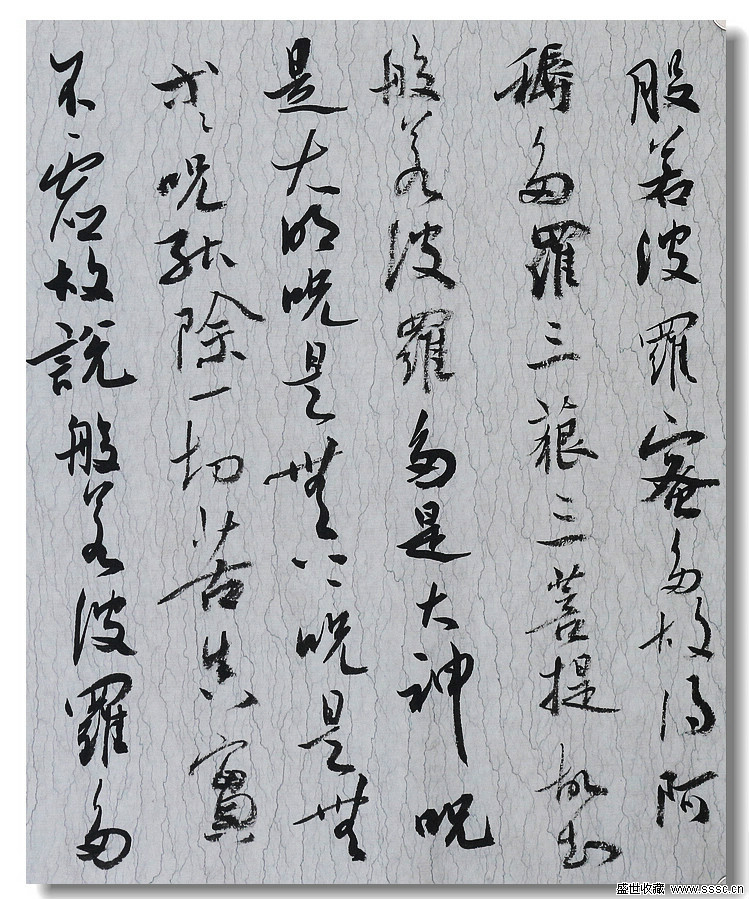 般若波羅蜜多故得阿
耨多羅三藐三菩提故知
般若波羅多是大神呪
是大明呪是無上呪是無
等々呪能除一切苦真實
不虛故說般若波羅多
盛世收藏 www.sssc.cn